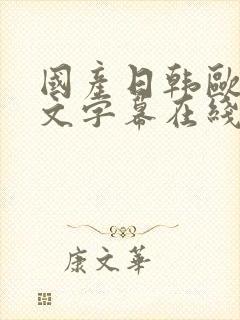 國產日韩歐
文字幕在綫
康文華